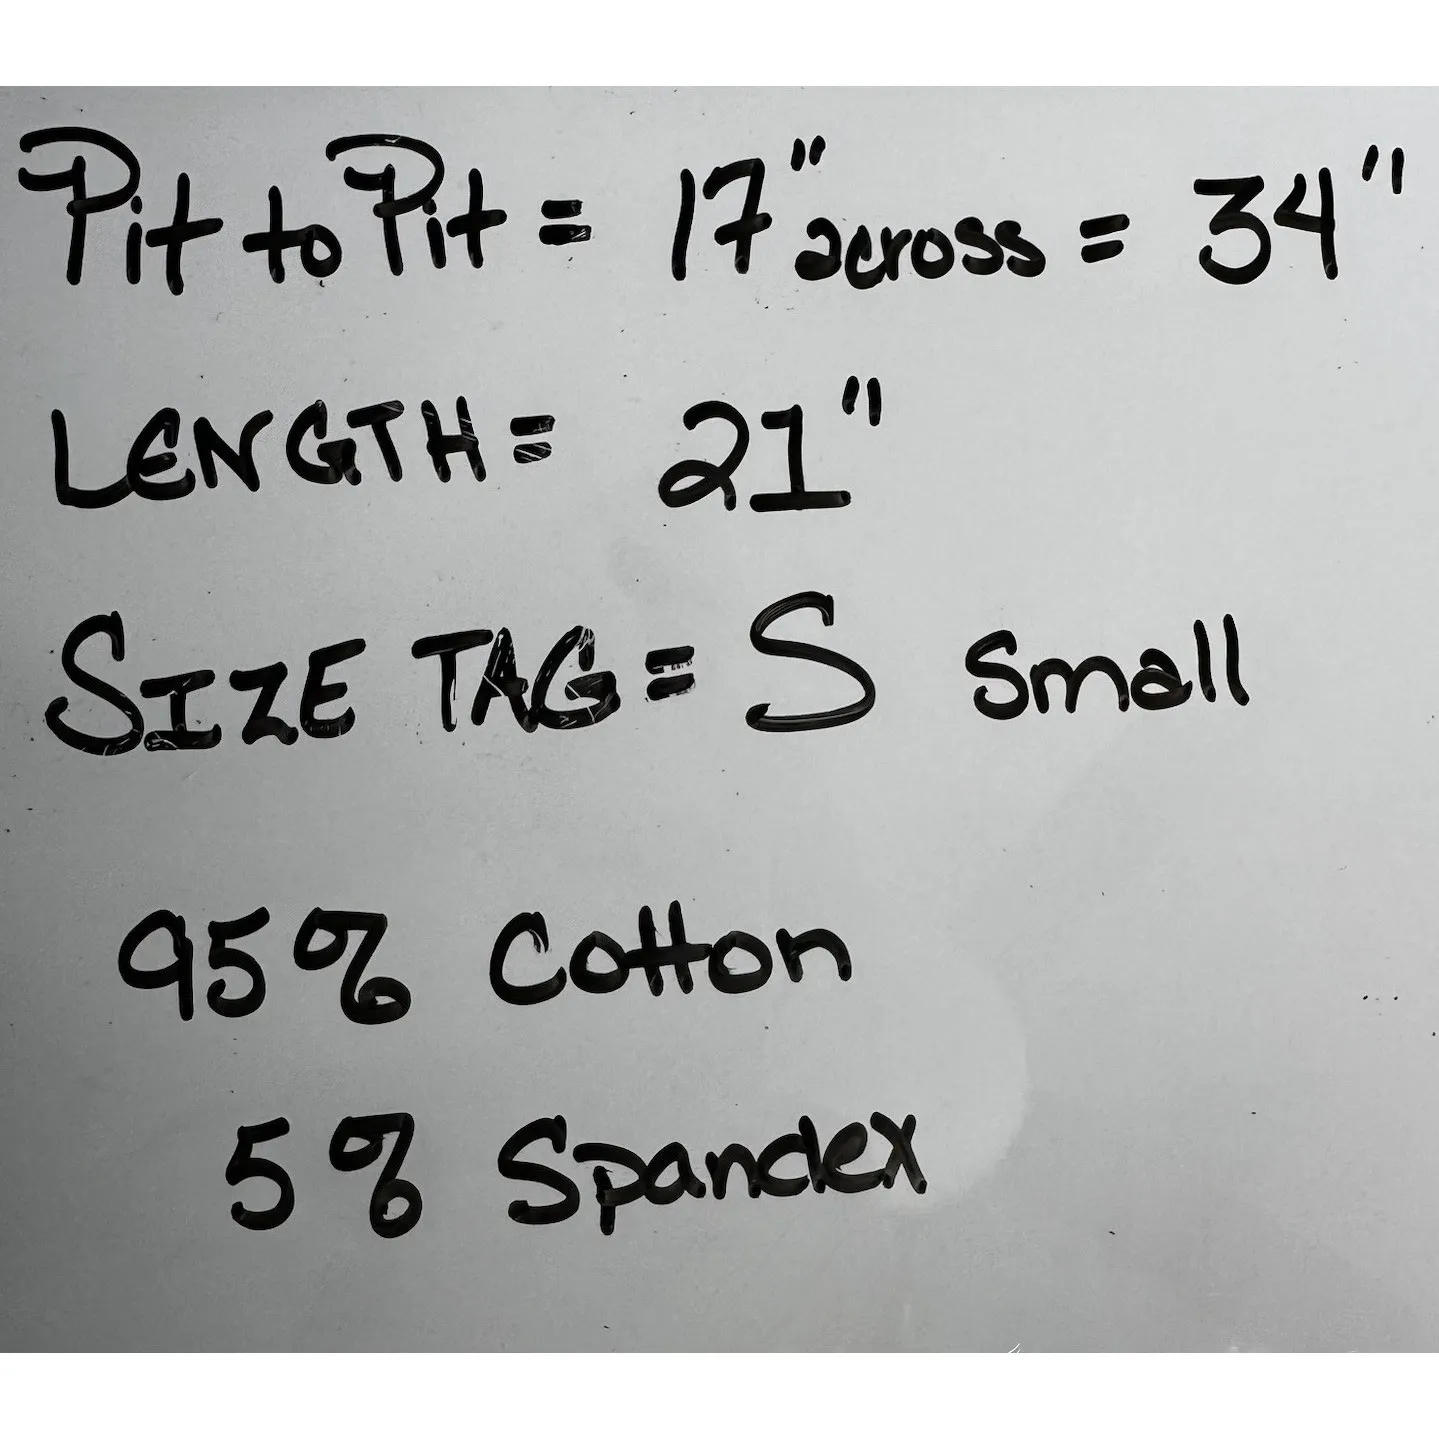 Pit to Pit = 17" across = 34"
LENGTH = 21"
SIZE TAG = S Small
95% Cotton
5% Spandex